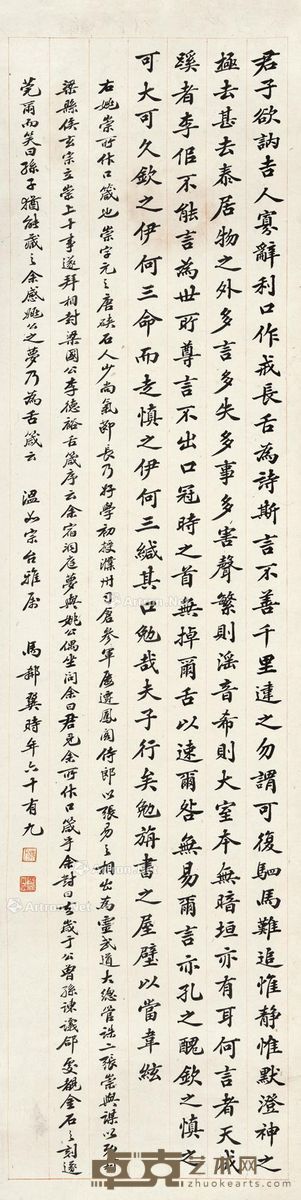 君子欲訥吉人寡辭利口作戒長舌為詩斯言不善千里違之勿謂可復駟馬難追惟靜惟默澄神之
極去甚去泰居物之外多言多失多事多害聲繁則淫音希則大室本無暗垣亦有耳何言者天成
蹊者李佢不能言為世所尊言不出口冠時之首無掉爾舌以速爾咎無易爾言亦孔之醜欽之慎之
可大可久欽之伊何三命而走慎之伊何三緘其口勉哉夫子行矣勉旃書之屋壁以當韋絃
右姚崇所作口箴也崇字元之唐硤石人少尚氣節長乃好學初授濮州司倉參軍屢遷鳳閣侍郎以張易之相出為靈武道大總管誅二張崇與謀以功封
梁縣侯玄宗立崇上十事遂拜相封梁國公李德裕舌箴序云余宿洞庭夢與姚公偶坐問余曰君見余所作口箴乎余對曰去歲于公曾孫諫議郃處覩金石之刻遂
莞爾而笑曰孫子猶能藏之余感姚公之夢乃為舌箴云　溫如宗台雅屬　馬鄰翼時年六十有九
Artron.Net
艺术网
zhuokearts.com